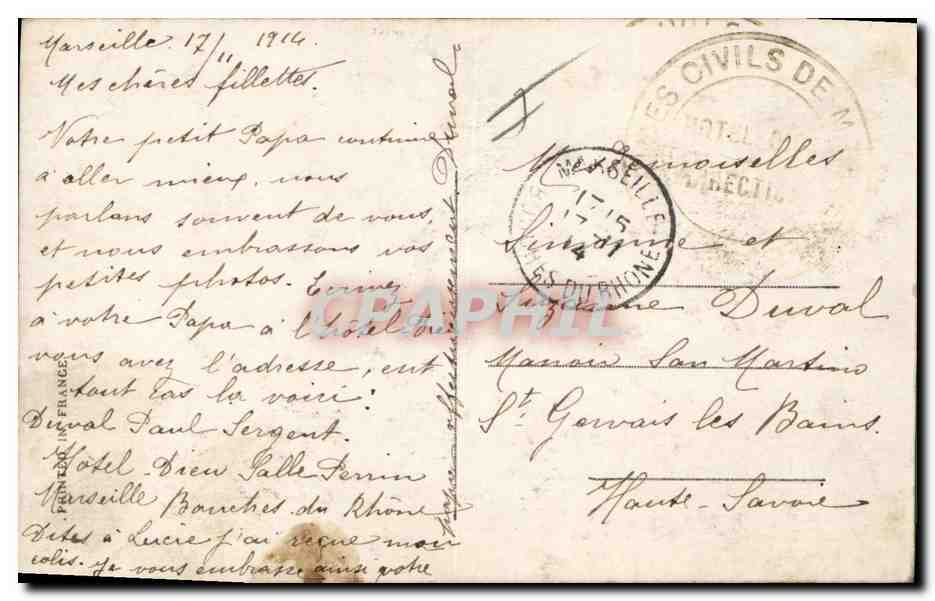 Marseille. 17/11 1914
Mes chères fillettes.
Votre petit Papa continue
à aller mieux, nous
parlons souvent de vous,
et nous embrassons vos
petites photos. Ecrivez
à votre Papa à l'hôtel Dieu
vous avez l'adresse, en
tout cas la voici:
Duval Paul Sergent.
Hôtel Dieu Salle Perrin
Marseille Bouches du Rhône
Dites à Lucie j'ai reçue mon
colis. je vous embrasse ainsi votre
papa affectueusement Duval
PRINTED IN FRANCE
ES CIVILS DE M
HOTEL D
DIRECTI
MARSEILLE
17 15
17 - 11
14
BOUCHES DU RHONE
Mesdemoiselles
Simonne et
Suzanne Duval
Manoir San Martino
St Gervais les Bains.
Haute-Savoie
CPAPHIL